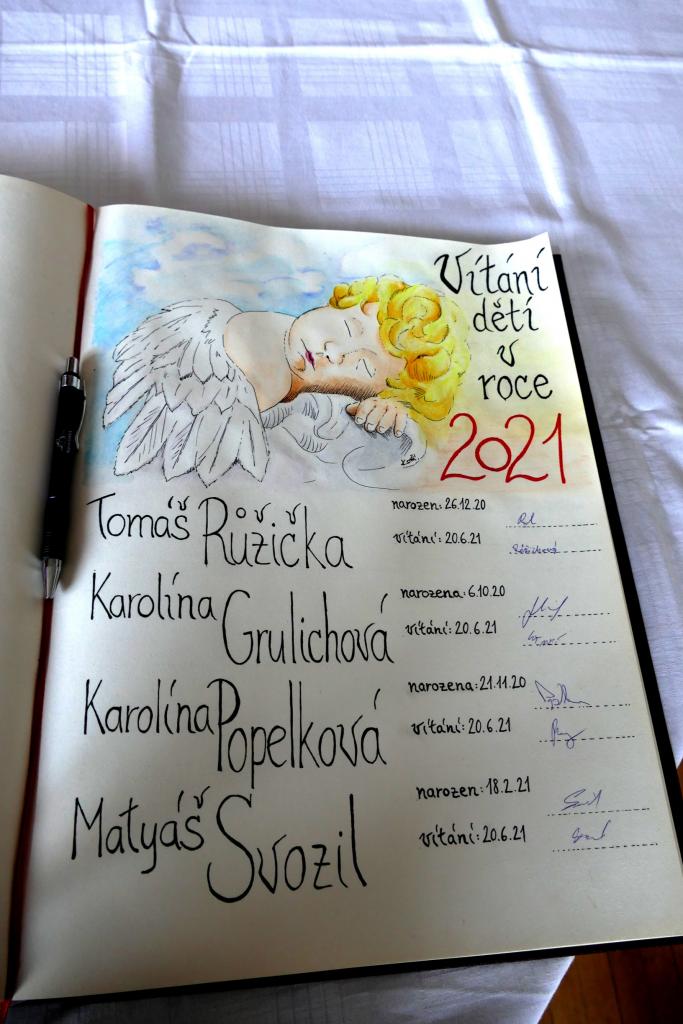 Vítání
dětí
v
roce
2021
Tomáš Růžička
narozen: 26.12.20
vítání: 20.6.21
Růžičková
Karolína Grulichová
narozena: 6.10.20
vítání: 20.6.21
Karolína Popelková
narozena: 21.11.20
vítání: 20.6.21
Matyáš Svozil
narozen: 18.2.21
vítání: 20.6.21